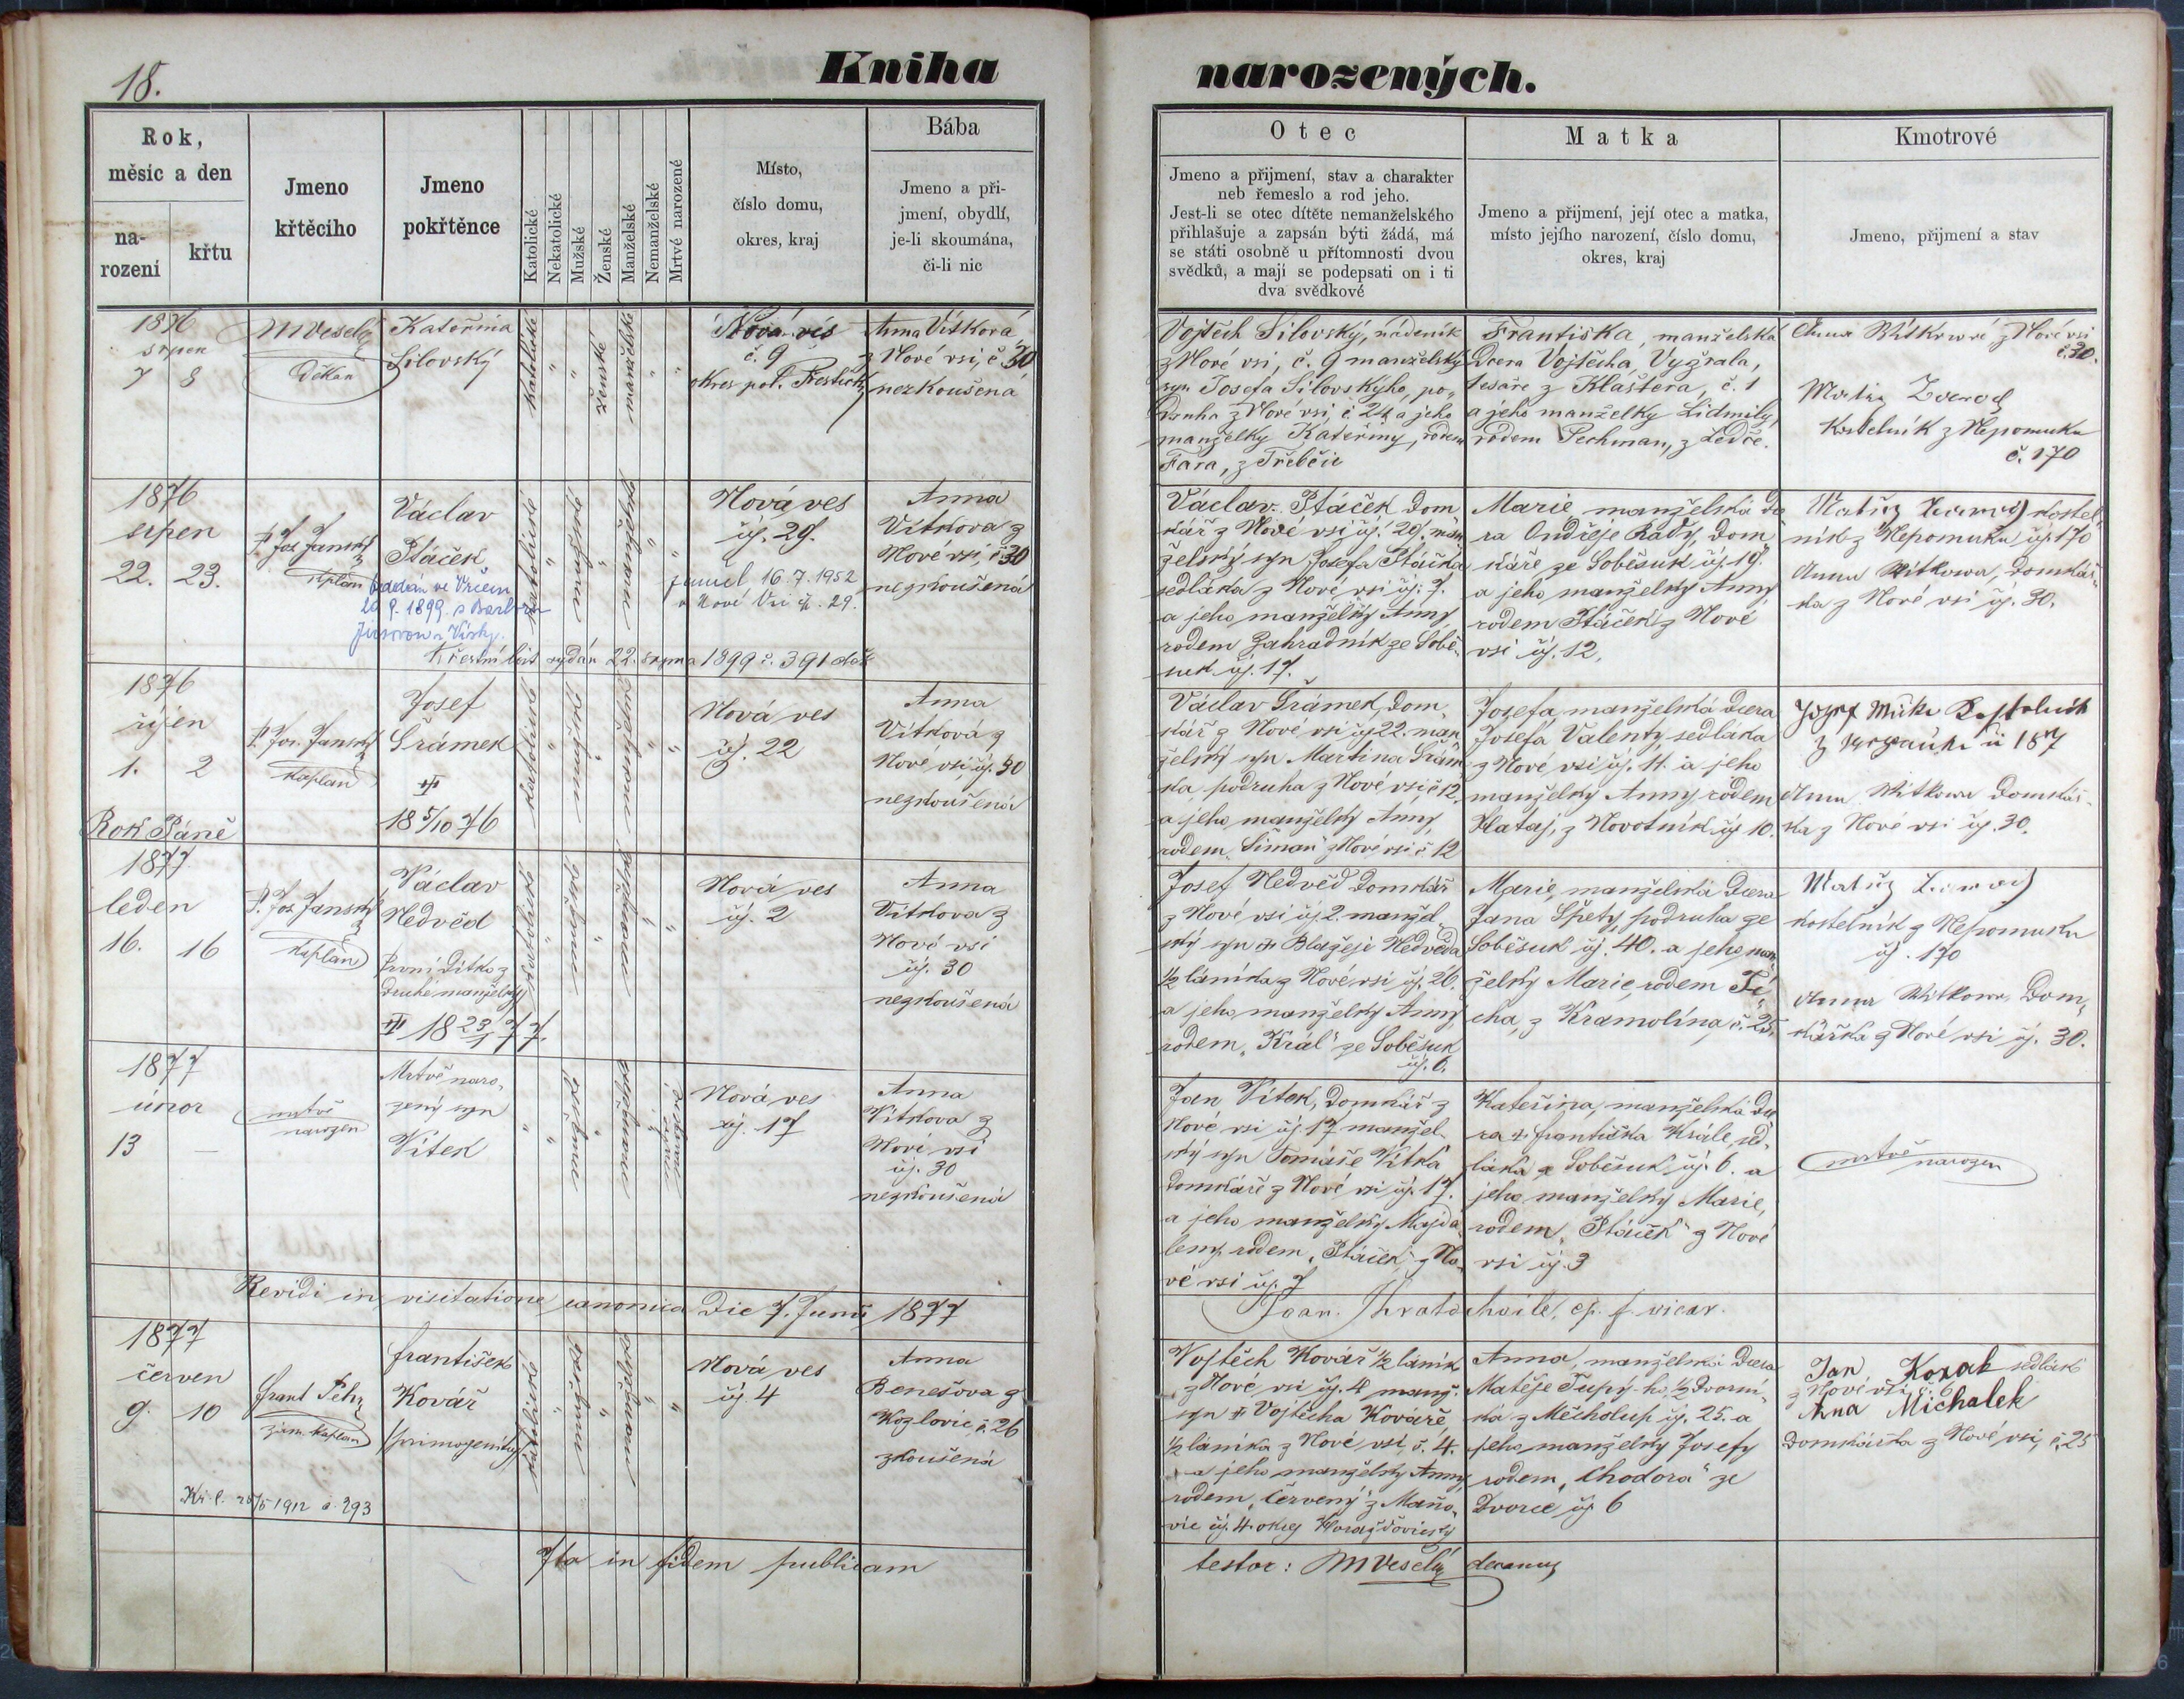 18.
Kniha
narozených.
Rok,
měsíc a den
na-
rození
křtu
Jmeno
křtěcího
Jmeno
pokřtěnce
Katolické
Nekatolické
Mužské
Ženské
Manželské
Nemanželské
Mrtvé narozené
Místo,
číslo domu,
okres, kraj
Bába
Jmeno a při-
jmení, obydlí,
je-li skoumána,
či-li nic
Otec
Jmeno a přijmení, stav a charakter
neb řemeslo a rod jeho.
Jest-li se otec dítěte nemanželského
přihlašuje a zapsán býti žádá, má
se státi osobně u přítomnosti dvou
svědků, a mají se podepsati on i ti
dva svědkové
Matka
Jmeno a přijmení, její otec a matka,
místo jejího narození, číslo domu,
okres, kraj
Kmotrové
Jmeno, přijmení a stav
1876
srpen
7 8
MVeselý
Děkan
Kateřina
Silovský
katolické
ženské
manželské
Nová ves
č. 9
okres pol. Přeštický
Anna Vítková
z Nové vsi, č. 30
nezkoušená
Vojtěch Silovský, nádeník
z Nové vsi, č. 9 manželský
syn Josefa Silovskýho, po-
druha z Nové vsi, č. 24 a jeho
manželky Kateřiny, rodem
Fára, z Třebčic
Františka, manželská
Dcera Vojtěcha, Vyžrala,
tesaře z Kláštera, č. 1
a jeho manželky Lidmily,
rodem Pechman, z Ledče.
Anna Witkowá z Nové vsi
č. 30.
Matěj
Kostelník z Nepomuku
č. 170
1876
srpen
22. 23.
P. Jos Janský
kaplan
Václav
Ptáček
oddán ve Vrčeni
1899 s Barborou
Křestní list vydán 22. srpna 1899 č. 391
Nová ves
čj. 29.
zemřel 16.7.1952
v Nové Vsi č. 29.
Anna
Vítkova z
Nové vsi, č. 30
nezkoušená
Václav Ptáček Dom
kář z Nové vsi čj. 29. man
želský syn Josefa Ptáčka
sedláka z Nové vsi čj. 7.
a jeho manželky Anny
rodem Zahradník ze Sobě-
suk čj. 17.
Marie manželská Dce
ra Ondřeje Rady, Dom
káře ze Soběsuk čj. 19.
a jeho manželky Anny
rodem Ptáček z Nové
vsi čj. 12.
Matěj kostel-
ník z Nepomuku čj. 170
Anna Witkowa, Domkář-
ka z Nové vsi čj. 30.
1876
říjen
1. 2
P. Jos. Janský
kaplan
Josef
Srámek
18 5/10 76
Nová ves
čj. 22
Anna
Vítková z
Nové vsi, čj. 30
nezkoušená
Václav Srámek, Dom-
kář z Nové vsi čj 22. man
želský syn Martina Srám
ka podruha z Nové vsi, č. 12.
a jeho manželky Anny,
rodem „Siman“ z Nové vsi č. 12
Josefa, manželská Dcera
Josefa Valenty, sedláka
z Nové vsi čj. 11. a jeho
manželky Anny, rodem
Hlataj, z Novotník čj. 10.
Anna Witkowa Domkář-
ka z Nové vsi čj. 30.
Rok Páně
1877
leden
16. 16
P. Jos Janský
kaplan
Václav
Nedvěd
První Dítko z
Druhé manželky
18 23/1 77.
Nová ves
čj. 2
Anna
Vítkova z
Nové vsi
čj. 30
nezkoušená
Josef Nedvěd Domkář
z Nové vsi čj. 2. manžel-
ský syn Blažeje Nedvěda
1/2 láníka z Nové vsi čj. 26.
a jeho manželky Anny,
rodem „Král“ ze Soběsuk
čj. 6.
Marie, manželská Dcera
Jana Spety, podruha ze
Soběsuk čj. 40. a jeho man-
želky Marie, rodem Tě
cha, z Kramolína, č. 25.
Matěj
kostelník z Nepomuku
čj. 170
Anna Witkowa, Dom-
kářka z Nové vsi čj. 30.
1877
únor
13 —
mrtvě
narozen
Mrtvě naro-
zený syn
Vítek
Nová ves
čj. 17
Anna
Vítkova z
Nové vsi
čj. 30
nezkoušená
Jan Vítek, Domkář z
Nové vsi čj. 17 manžel-
ský syn Tomáše Vítka
Domkáře z Nové vsi čj. 17.
a jeho manželky Majda
leny rodem „Ptáček“ z No-
vé vsi čj. 7
Kateřina, manželská Dce
ra Františka Krále, sed-
láka z Soběsuk čj. 6. a
jeho manželky Marie,
rodem „Ptáček“ z Nové
vsi čj. 3
mrtvě
narozen
Revidi in visitatione canonica Die 7. Junii 1877
1877
červen
9. 10
Frant Pehr
kaplan
František
Kovář
(primogenitus)
Kř. l. 1912 č. 293
Nová ves
čj. 4
Anna
Benešova z
Kozlovic, č. 26
zkoušená
Vojtěch Kovář 1/2 láník
z Nové vsi čj. 4 manž.
syn Vojtěcha Kováře,
1/2 láníka z Nové vsi, č. 4.
a jeho manželky Anny,
rodem „Červený“ z Maňo-
vic čj. 4. okres Horažďovický
Anna, manželská Dcera
Matěje Tupý-ho, 1/2 Dvorní-
ka z Měcholup čj. 25. a
jeho manželky Josefy
rodem „Chodora“ ze
Dvorce čj. 6
Jan Koxat sedlák
z Nové vsi č. 6
Anna Michalek
Domkářka z Nové vsi, č. 25
Ita in fidem publicam
testor: MVeselý decanus